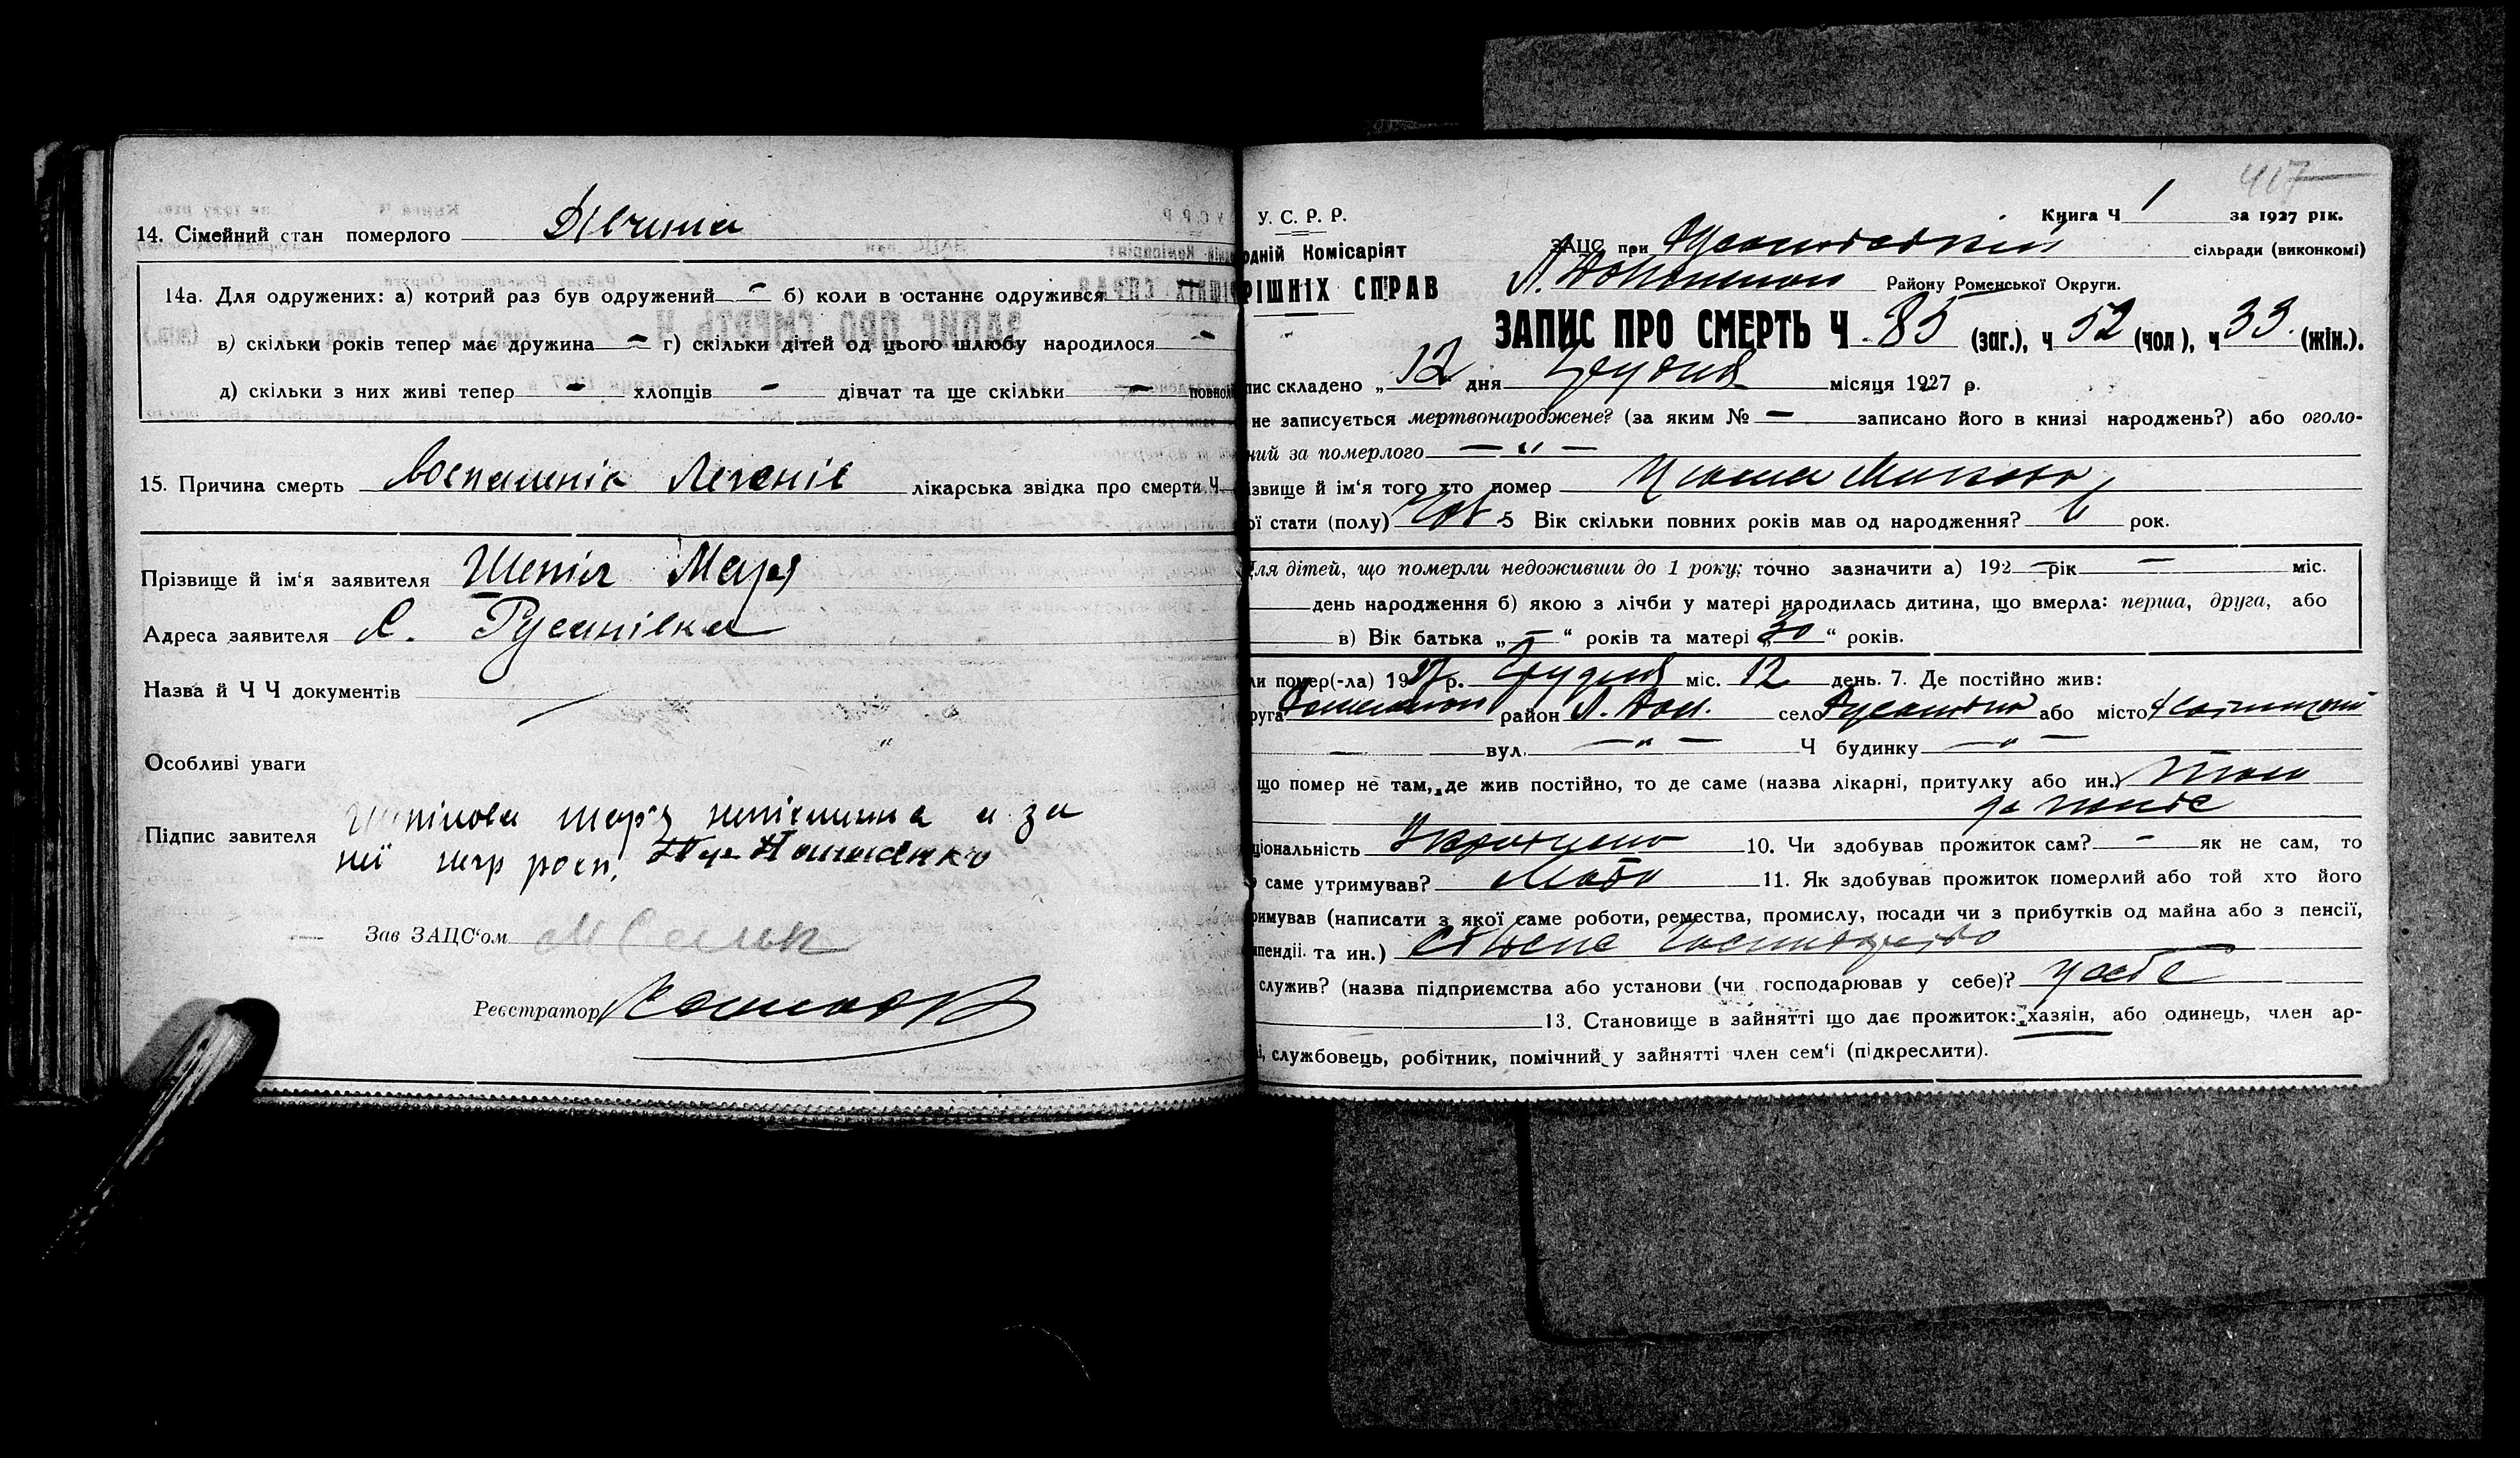 14. Сімейний стан померлого Дівчина
14а. Для одружених: а) котрий раз був одружений — б) коли в останнє одружився —
в) скільки років тепер має дружина — г) скільки дітей од цього шлюбу народилося —
д) скільки з них живі тепер — хлопців — дівчат та ще скільки — повноліт
15. Причина смерть Воспаленіє Легеніє лікарська звідка про смерти Ч
Прізвище й ім'я заявителя Шепіл Марія
Адреса заявителя С. Русанівка
Назва й Ч Ч документів —
Особливі уваги "
Підпис завителя марія неписьмина а за
неї
Зав ЗАЦС'ом
Реєстратор
417
У. С. Р. Р.
Книга Ч 1 за 1927 рік.
одній Комісаріят
ЗАЦС при Русанівській сільради (виконкомі)
РІШНІХ СПРАВ
Л. Долинськ Району Роменської Округи.
ЗАПИС ПРО СМЕРТЬ Ч 85 (заг.), ч 52 (чол), ч 33 (жін.).
пис складено „12 дня Грудня місяця 1927 р.
не записується мертвонароджене? (за яким № — записано його в книзі народжень?) або оголо-
ний за померлого — " —
ізвище й ім'я того хто помер
ої стати (полу) 5 Вік скільки повних років мав од народження? 6 рок.
Для дітей, що померли недоживши до 1 року: точно зазначити а) 192 — рік — міс.
день народження б) якою з лічби у матері народилась дитина, що вмерла: перша, друга, або
в) Вік батька „—“ років та матері „30“ років.
ли помер(-ла) 1927 р. Грудня міс. 12 день. 7. Де постійно жив:
руга Роменськой район Л. Дол. село Русанівка або місто
— вул. — " — Ч будинку — " —
що помер не там, де жив постійно, то де саме (назва лікарні, притулку або ин.) Тамо
ціональність Українець 10. Чи здобував прожиток сам? — як не сам, то
о саме утримував? Мати 11. Як здобував прожиток померлий або той хто його
римував (написати з якої саме роботи, ремества, промислу, посади чи з прибутків од майна або з пенсії,
ипендії. та ин.) Сільске Господарство
служив? (назва підприємства або установи (чи господарював у себе)? у себе
13. Становище в зайнятті що дає прожиток: хазяін, або одинець, член ар-
і, службовець, робітник, помічний у зайнятті член сем'і (підкреслити).